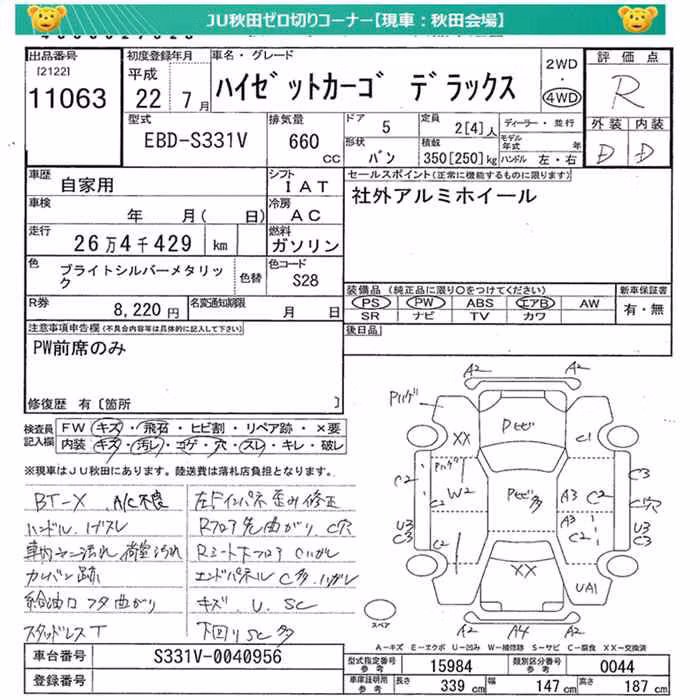 JU秋田ゼロ切りコーナー【現車：秋田会場】
出品番号
[2122]
11063
初度登録年月
平成
22年7月
車名・グレード
ハイゼットカーゴ デラックス
2WD
・
4WD
評価点
R
外装 内装
D D
型式
EBD-S331V
排気量
660
CC
ドア
5
定員
2[4]人
形状
バン
積載
350[250]kg
ディーラー・並行
モデル年式 年
ハンドル 左・右
車歴
自家用
シフト
IAT
車検
年 月( 日)
冷房
AC
走行
26万4千429 km
燃料
ガソリン
色
ブライトシルバーメタリック
色替
色コード
S28
R券
8,220円
名変通知期限
月 日
セールスポイント(正常に機能するものに限ります)
社外アルミホイール
装備品(純正品に限り○をつけてください)
PS PW ABS エアB AW
SR ナビ TV カワ
新車保証書
有・無
後日品
注意事項申告欄(不具合内容等は具体的に記入して下さい)
PW前席のみ
修復歴 有〔箇所 〕
検査員記入欄
FW キズ・飛石・ヒビ割・リペア跡・×要
内装 キズ・汚レ・コゲ・穴・スレ・キレ・破レ
※現車はJU秋田にあります。陸送費は落札店負担となります。
BT-X A/C不良
ハンドル、シゲスレ
車内ヤニ汚れ 荷室汚れ
カンバン跡
給油口フタ曲がり
スタッドレスT
左Fインパネ歪み修正
Rフロア先曲がり、C穴
Rシート下フロアCハガレ
エンドパネルC多、ハガレ
キズ、U、SC
下回りSC多
A2 A2
Pハゲ
Pヒビ
XX
C1
Pハゲ
W2
Pヒビ多
A3 C2
C2
C2
A3
C2
C2
C3
C穴
U3
C3
U3
C3
XX
UA1
A2 A4 A2
スペア
A-キズ E-エクボ U-凹み W-補修跡 S-サビ C-腐食 XX-交換済
車台番号
S331V-0040956
登録番号
型式指定番号
15984
類別区分番号
0044
車庫証明用参考
長さ 339cm 幅 147cm 高さ 187cm